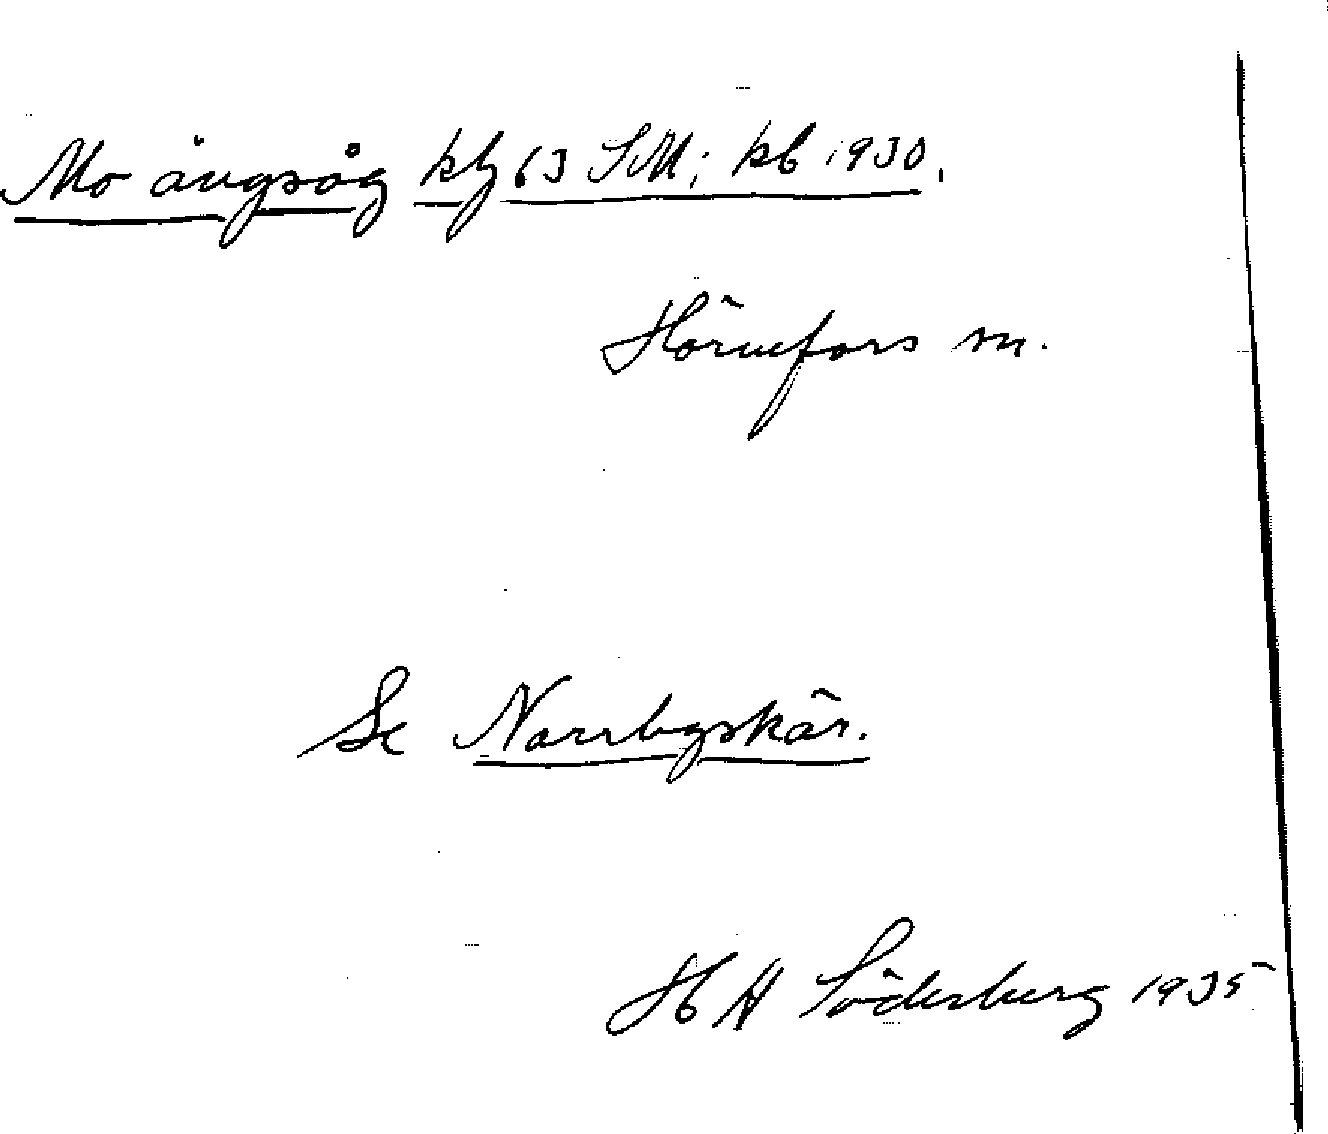 Mo ångsåg kbl 63 SM; kb 1930.
Hörnefors sn.
Se Norrbyskär.
H H Söderberg 1935